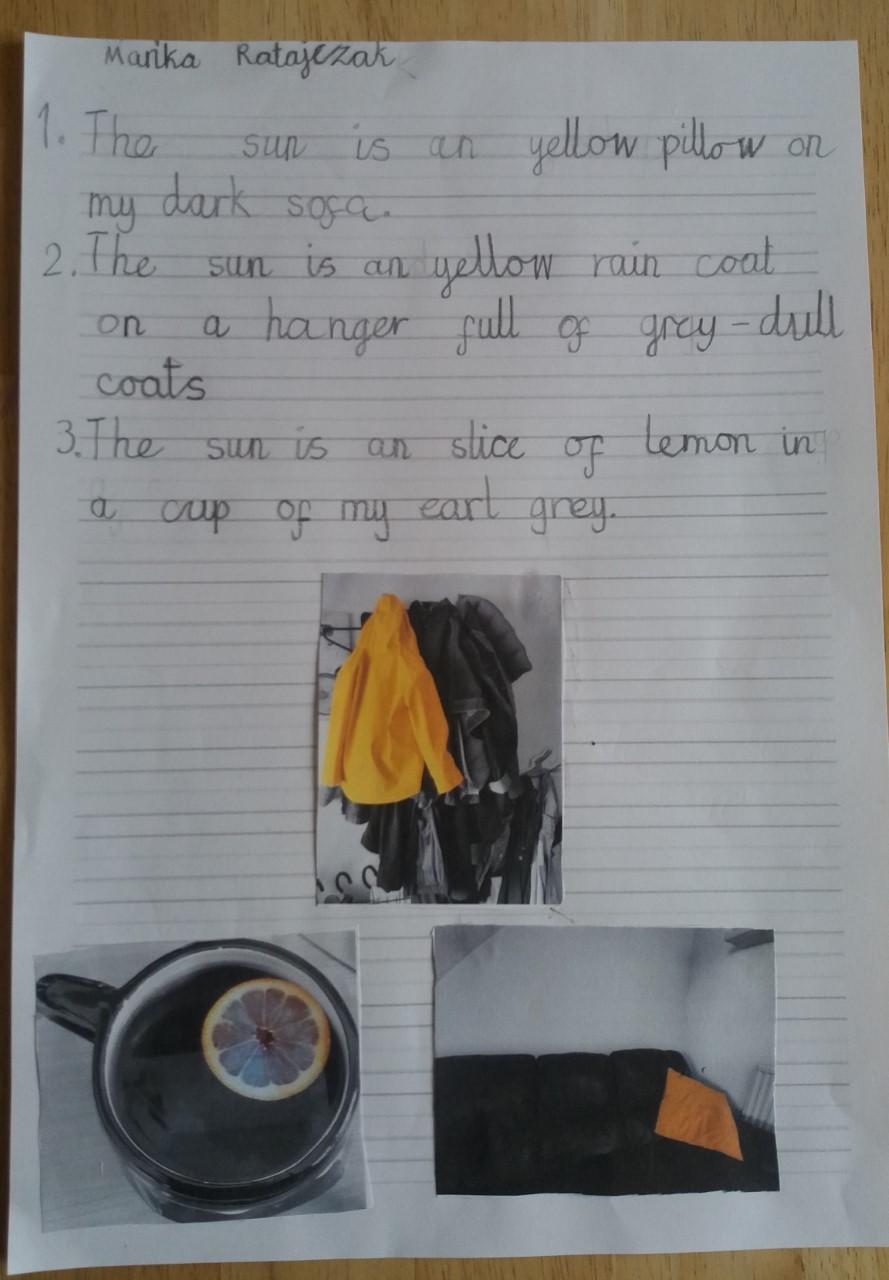 Marika Ratajczak
1. The sun is an yellow pillow on
my dark sofa.
2. The sun is an yellow rain coat
on a hanger full of grey-dull
coats
3. The sun is an slice of lemon in
a cup of my earl grey.